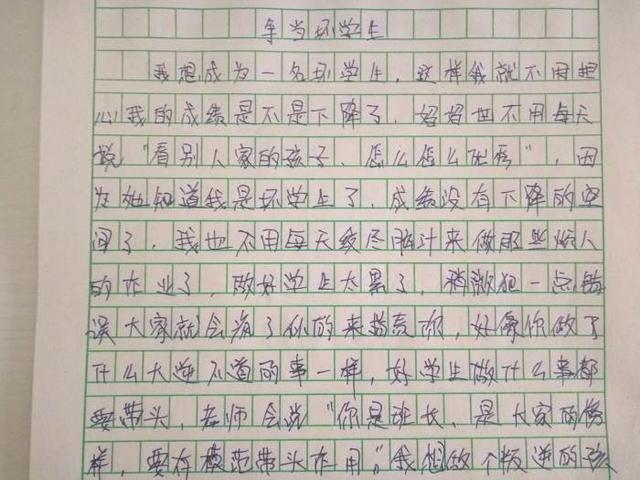 争当坏学生
我想成为一名坏学生，这样我就不用担
心我的成绩是不是下降了，妈妈也不用每天
说“看别人家的孩子，怎么怎么优秀”，因
为她知道我是坏学生了，成绩没有下降的空
间了，我也不用每天绞尽脑汁来做那些烦人
的作业了，做好学生太累了，稍微犯一点错
误大家就会疯了似的来指责你，好像你做了
什么大逆不道的事一样，好学生做什么事都
要带头，老师会说“你是班长，是大家的榜
样，要存模范带头作用。”我想做个叛逆的孩